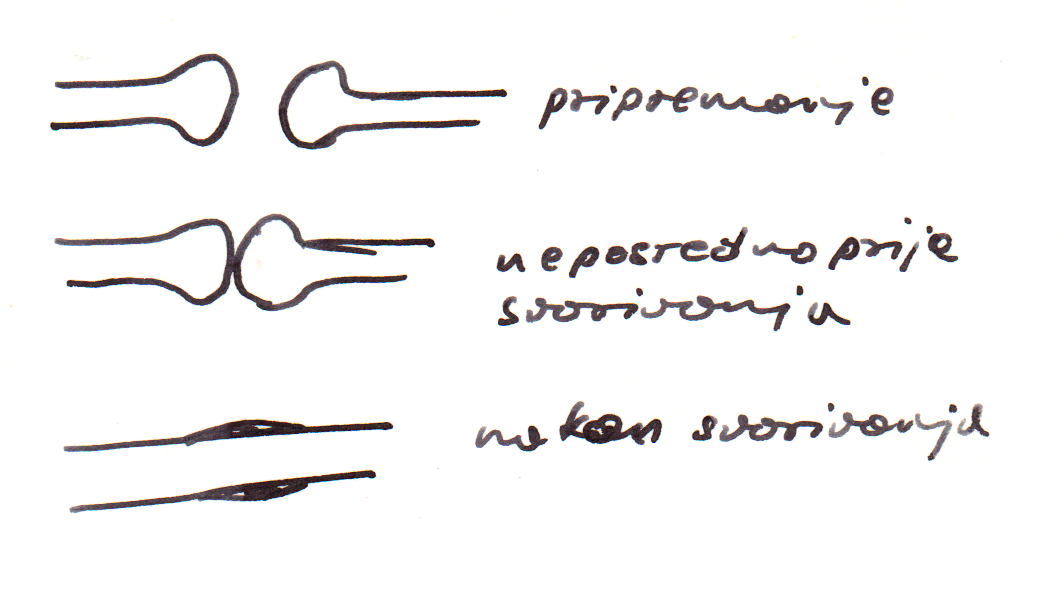 pripremanje
neposredno prije
svarivanja
nakon svarivanja